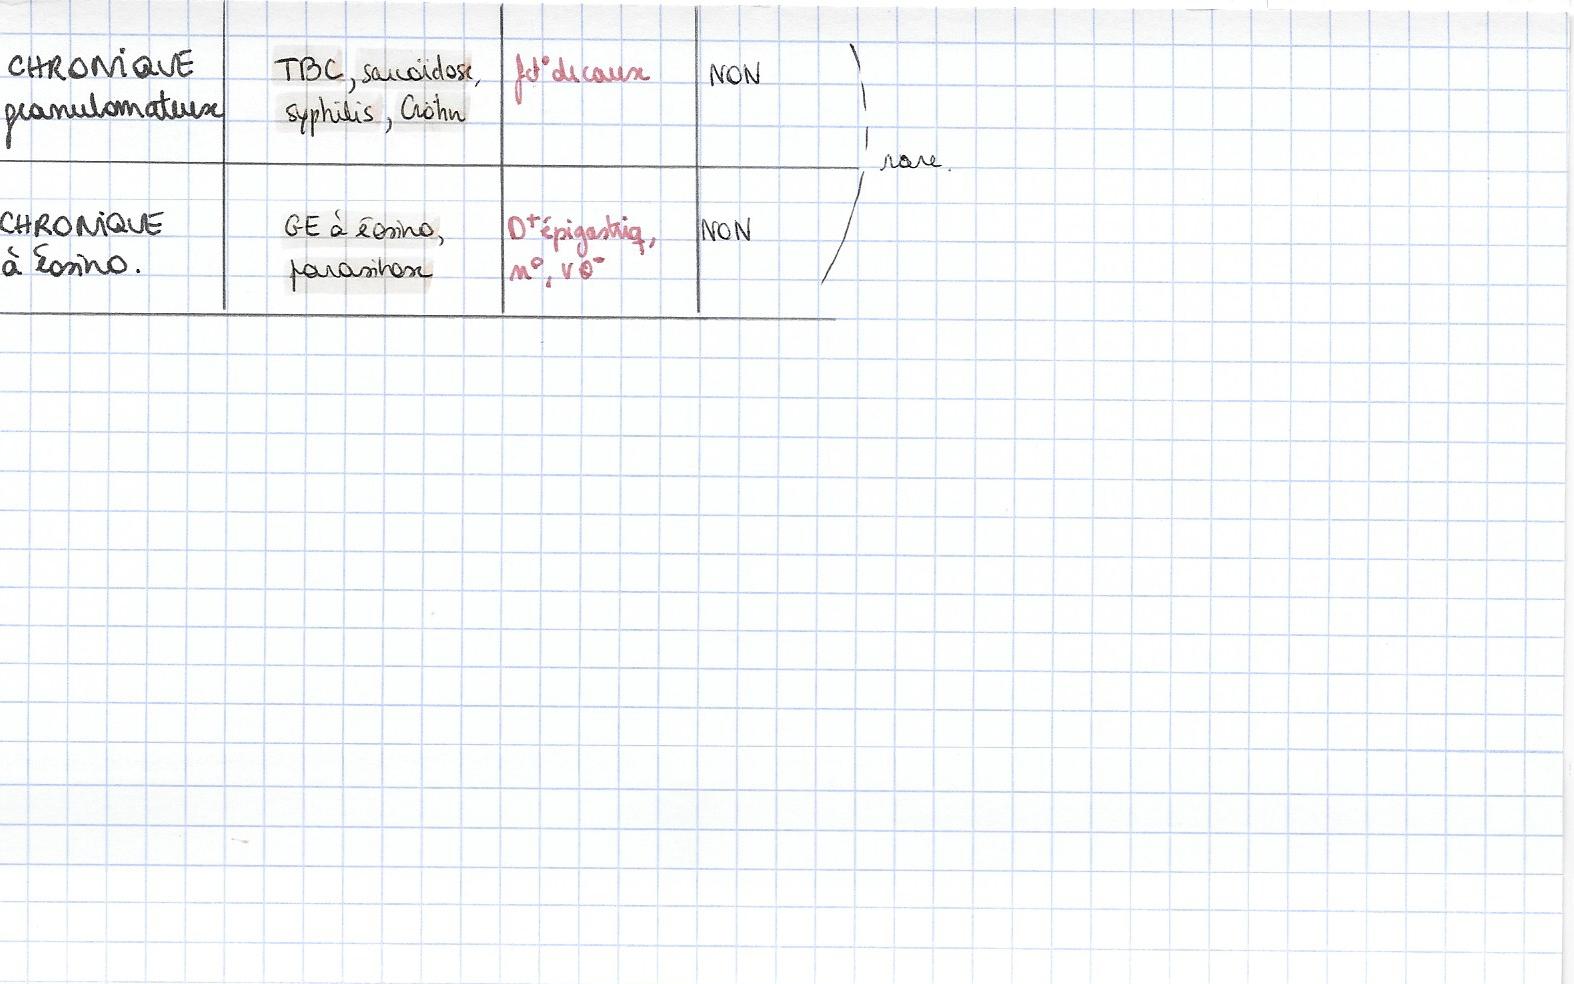 CHRONIQUE
granulomateuse
TBC, sarcoïdose,
syphilis, Cröhn
fct° de cause
NON
rare.
CHRONIQUE
à Éosino.
GE à éosino,
parasitose
D+ épigastriq,
n°, vo-
NON